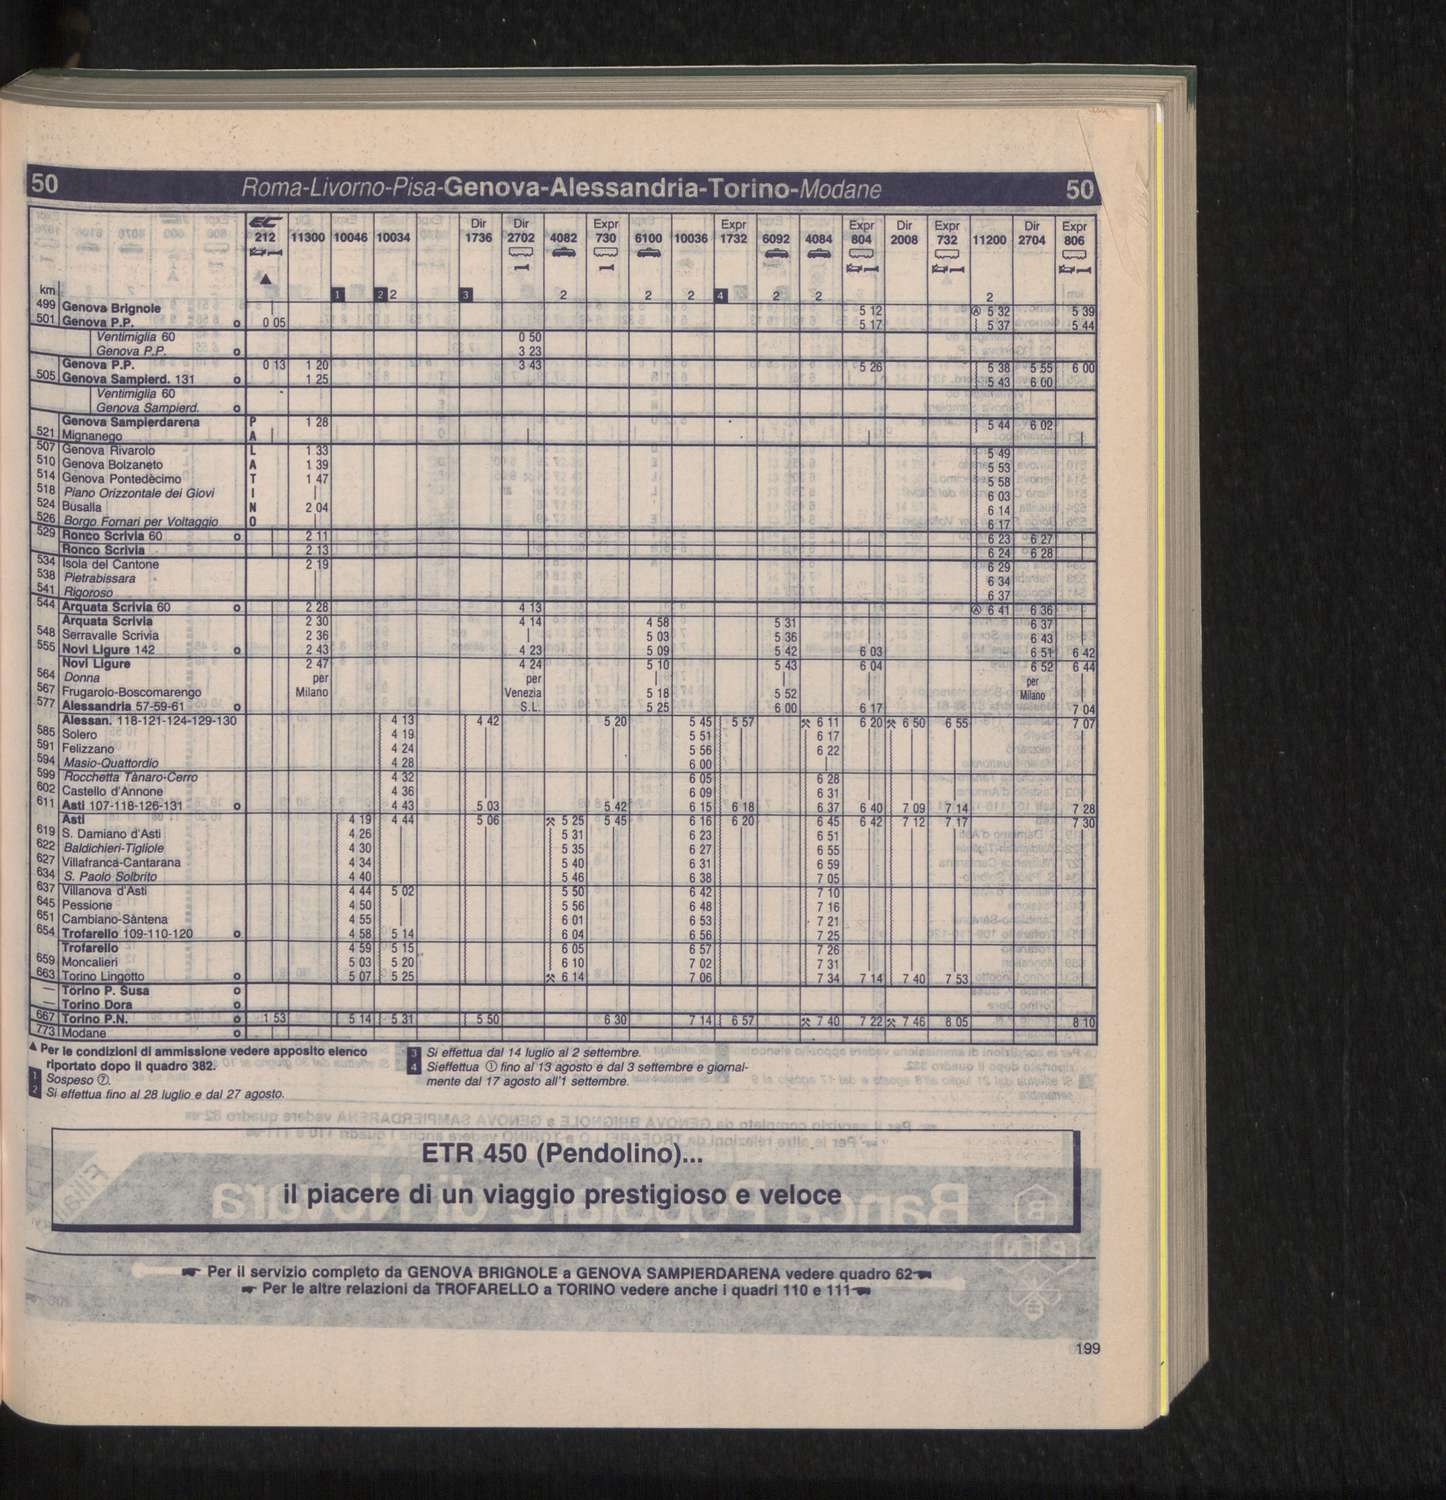 50 Roma-Livorno-Pisa-Genova-Alessandria-Torino-Modane 50
EC Dir Dir Expr Expr Expr Dir Expr Dir Expr
212 11300 10046 10034 1736 2702 4082 730 6100 10036 1732 6092 4084 804 2008 732 11200 2704 806
▲
km 1 2 2 3 2 2 2 4 2 2 2
499 Genova Brignole 5 12 Ⓐ 5 32 5 39
501 Genova P.P. o 0 05 5 17 5 37 5 44
Ventimiglia 60 0 50
Genova P.P. o 3 23
Genova P.P. 0 13 1 20 3 43 5 26 5 38 5 55 6 00
505 Genova Sampierd. 131 o 1 25 5 43 6 00
Ventimiglia 60
Genova Sampierd. o
Genova Sampierdarena P 1 28 5 44 6 02
521 Mignanego A
507 Genova Rivarolo L 1 33 5 49
510 Genova Bolzaneto A 1 39 5 53
514 Genova Pontedècimo T 1 47 5 58
518 Piano Orizzontale dei Giovi I 6 03
524 Busalla N 2 04 6 14
526 Borgo Fornari per Voltaggio O 6 17
529 Ronco Scrivia 60 o 2 11 6 23 6 27
Ronco Scrivia 2 13 6 24 6 28
534 Isola del Cantone 2 19 6 29
538 Pietrabissara 6 34
541 Rigoroso 6 37
544 Arquata Scrivia 60 o 2 28 4 13 Ⓐ 6 41 6 36
Arquata Scrivia 2 30 4 14 4 58 5 31 6 37
548 Serravalle Scrivia 2 36 5 03 5 36 6 43
555 Novi Ligure 142 o 2 43 4 23 5 09 5 42 6 03 6 51 6 42
Novi Ligure 2 47 4 24 5 10 5 43 6 04 6 52 6 44
564 Donna per per per
567 Frugarolo-Boscomarengo Milano Venezia 5 18 5 52 Milano
577 Alessandria 57-59-61 o S.L. 5 25 6 00 6 17 7 04
Alessan. 118-121-124-129-130 4 13 4 42 5 20 5 45 5 57 ⚒ 6 11 6 20 ⚒ 6 50 6 55 7 07
585 Solero 4 19 5 51 6 17
591 Felizzano 4 24 5 56 6 22
594 Masio-Quattordio 4 28 6 00
599 Rocchetta Tànaro-Cerro 4 32 6 05 6 28
602 Castello d'Annone 4 36 6 09 6 31
611 Asti 107-118-126-131 o 4 43 5 03 5 42 6 15 6 18 6 37 6 40 7 09 7 14 7 28
Asti 4 19 4 44 5 06 ⚒ 5 25 5 45 6 16 6 20 6 45 6 42 7 12 7 17 7 30
619 S. Damiano d'Asti 4 26 5 31 6 23 6 51
622 Baldichieri-Tigliole 4 30 5 35 6 27 6 55
627 Villafranca-Cantarana 4 34 5 40 6 31 6 59
634 S. Paolo Solbrito 4 40 5 46 6 38 7 05
637 Villanova d'Asti 4 44 5 02 5 50 6 42 7 10
645 Pessione 4 50 5 56 6 48 7 16
651 Cambiano-Sàntena 4 55 6 01 6 53 7 21
654 Trofarello 109-110-120 o 4 58 5 14 6 04 6 56 7 25
Trofarello 4 59 5 15 6 05 6 57 7 26
659 Moncalieri 5 03 5 20 6 10 7 02 7 31
663 Torino Lingotto o 5 07 5 25 ⚒ 6 14 7 06 7 34 7 14 7 40 7 53
— Torino P. Susa o
— Torino Dora o
667 Torino P.N. o 1 53 5 14 5 31 5 50 6 30 7 14 6 57 ⚒ 7 40 7 22 ⚒ 7 46 8 05 8 10
773 Modane o
▲ Per le condizioni di ammissione vedere apposito elenco
riportato dopo il quadro 382.
1 Sospeso ⑦.
2 Si effettua fino al 28 luglio e dal 27 agosto.
3 Si effettua dal 14 luglio al 2 settembre.
4 Sieffettua ① fino al 13 agosto e dal 3 settembre e giornal-
mente dal 17 agosto all'1 settembre.
ETR 450 (Pendolino)...
il piacere di un viaggio prestigioso e veloce
Per il servizio completo da GENOVA BRIGNOLE a GENOVA SAMPIERDARENA vedere quadro 62
Per le altre relazioni da TROFARELLO a TORINO vedere anche i quadri 110 e 111
199